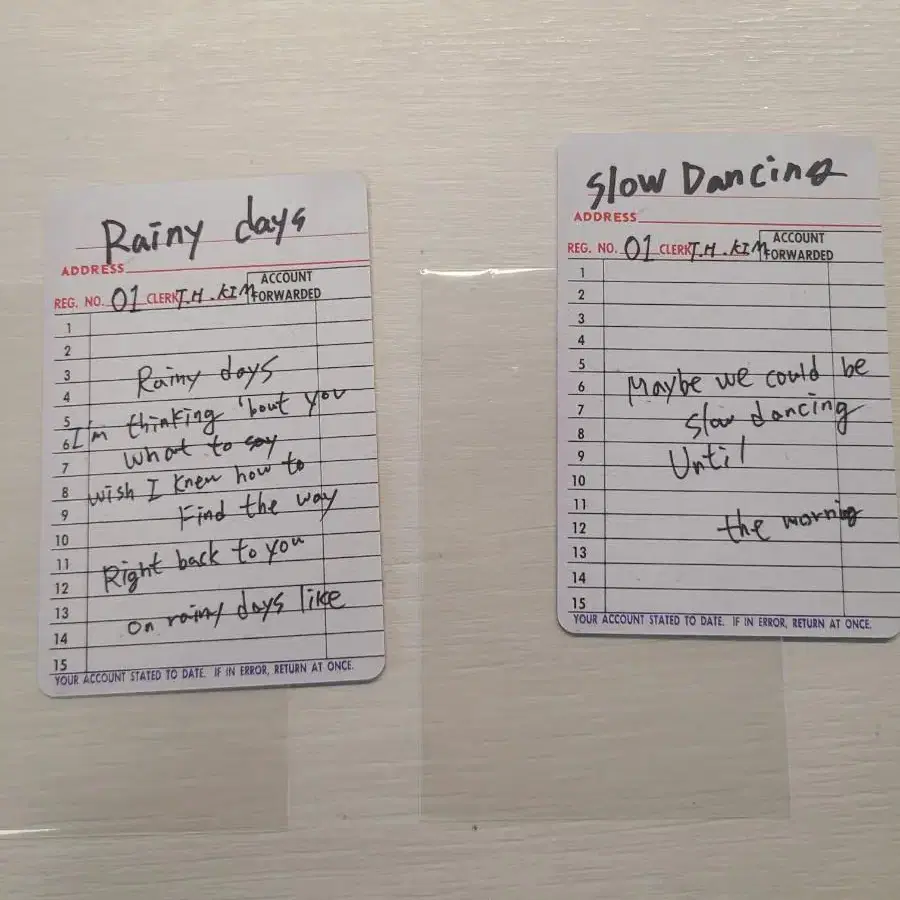 Rainy days
ADDRESS
REG. NO. 01 CLERK T.H.KIM ACCOUNT FORWARDED
1
2
3 Rainy days
4
5 I'm thinking 'bout you
6
7 what to say
8 wish I knew how to
9 Find the way
10
11 Right back to you
12
13 on rainy days like
14
15
YOUR ACCOUNT STATED TO DATE. IF IN ERROR, RETURN AT ONCE.
Slow Dancing
ADDRESS
REG. NO. 01 CLERK T.H.KIM ACCOUNT FORWARDED
1
2
3
4
5
6 Maybe we could be
7 slow dancing
8
9 Until
10
11
12 the morning
13
14
15
YOUR ACCOUNT STATED TO DATE. IF IN ERROR, RETURN AT ONCE.